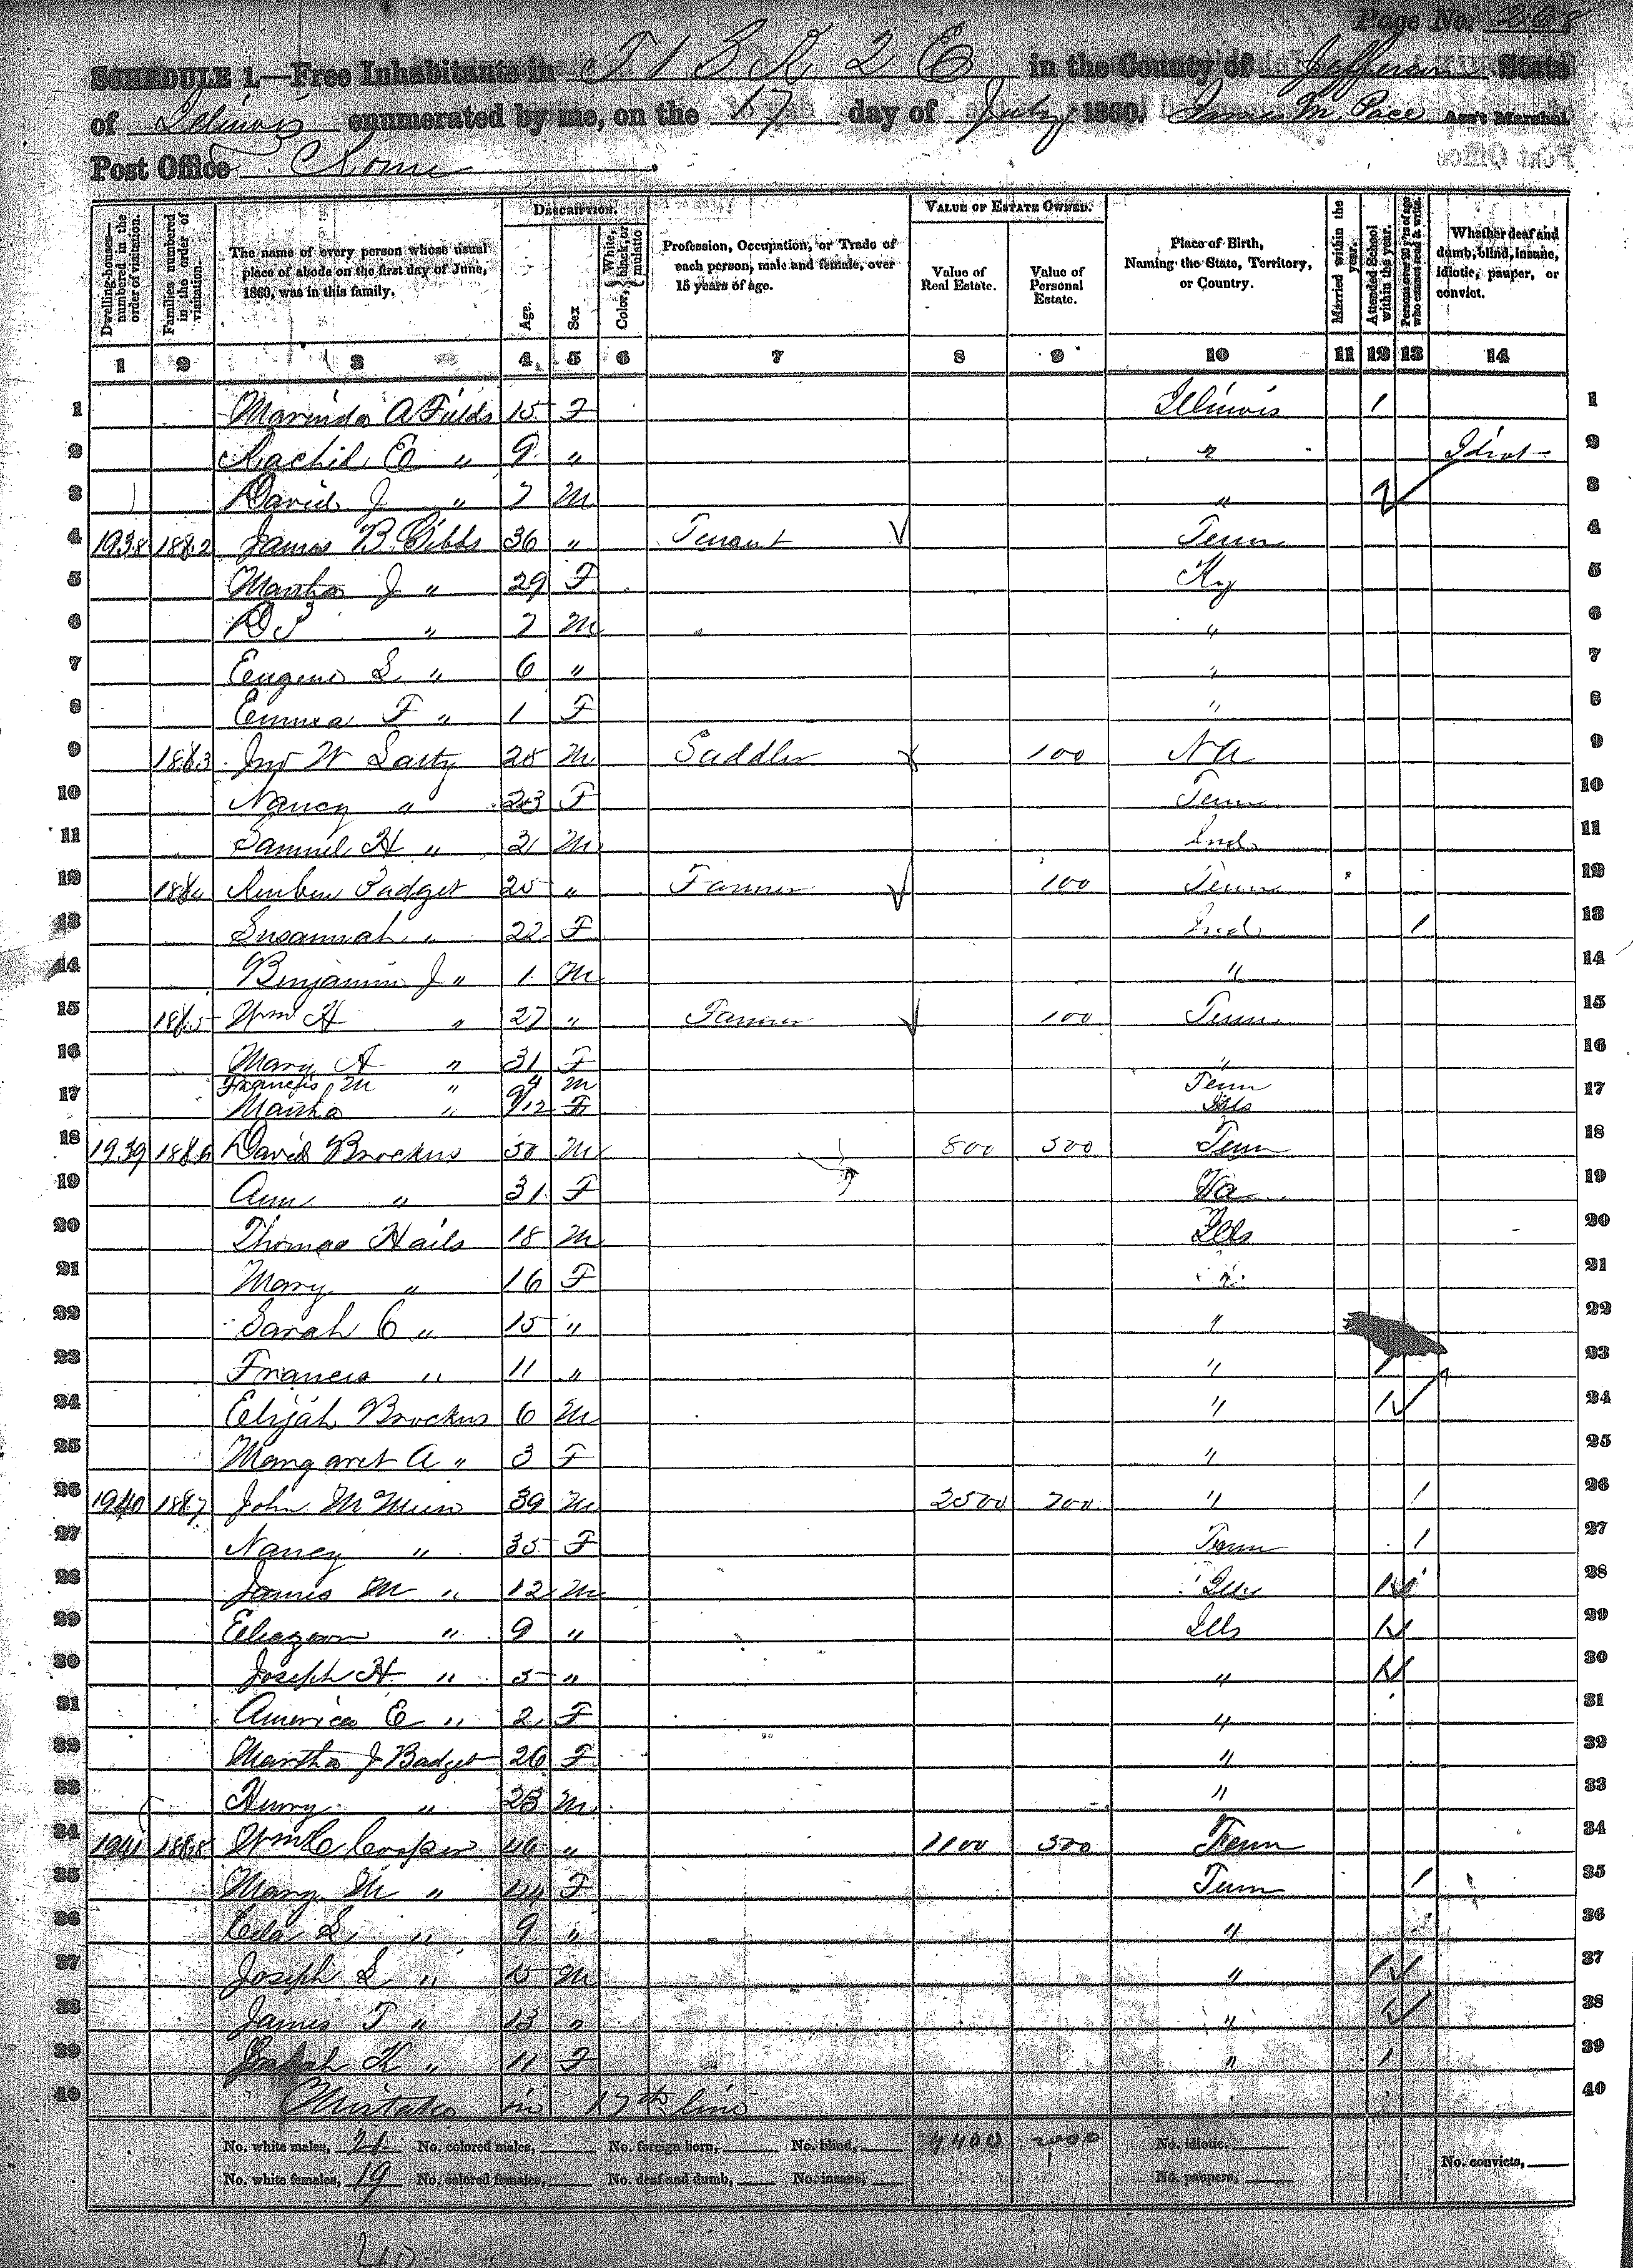 Page No. 268
SCHEDULE 1.—Free Inhabitants in T 1 S R 2 E in the County of Jefferson State
of Illinois enumerated by me, on the 17 day of July, 1860. James M. Pace Ass't Marshal.
Post Office Rome
Dwelling-houses—numbered in the order of visitation.
Families numbered in the order of visitation.
The name of every person whose usual place of abode on the first day of June, 1860, was in this family.
DESCRIPTION.
Age.
Sex
Color, White, black, or mulatto
Profession, Occupation, or Trade of each person, male and female, over 15 years of age.
VALUE OF ESTATE OWNED.
Value of Real Estate.
Value of Personal Estate.
Place of Birth, Naming the State, Territory, or Country.
Married within the year.
Attended School within the year.
Persons over 20 y'rs of age who cannot read & write.
Whether deaf and dumb, blind, insane, idiotic, pauper, or convict.
1 2 3 4 5 6 7 8 9 10 11 12 13 14
1 A Fields 15 F Illinois 1 1
2 Rachel E " 9 " " Idiot 2
3 David J " 7 M " 3
4 1938 1882 James B. Gibbs 36 " Tenant Tenn 4
5 Martha J " 29 F Ky 5
6 " 7 M " 6
7 Eugene S " 6 " " 7
8 Emma F " 1 F " 8
9 1883 Jno W Lasty 28 M Saddler 100 9
10 Nancy " 23 F Tenn 10
11 Samuel H " 2 M Ind 11
12 1884 Reuben Padget 25 " Farmer 100 Tenn 12
13 Susannah " 22 F Ind 1 13
14 Benjamin J " 1 M " 14
15 1885 Wm H " 27 " Farmer 100 Tenn 15
16 Mary A " 31 F " 16
Francis M " 4 M Tenn
17 Martha " 9/12 F Ills 17
18 1939 1886 David Brockus 50 M 800 300 Tenn 18
19 Ann " 31 F Va 19
20 Thomas Hails 18 M Ills 20
21 Mary " 16 F " 21
22 Sarah C " 15 " " 22
23 Francis " 11 " " 1 23
24 Elijah Brockus 6 M " 1 24
25 Margaret A " 3 F " 25
26 1940 1887 John 39 M 2500 700 " 1 26
27 Nancy " 35 F Tenn 1 27
28 James M " 12 M Ills 1 28
29 " 9 " Ills 1 29
30 Joseph H " 5 " " 1 30
31 America E " 2 F " 31
32 Martha J Badget 26 F " 32
33 Henry " 23 M " 33
34 1941 1888 Wm C Cooper 46 " 1100 300 Tenn 34
35 Mary M " 44 F Tenn 1 35
36 " 9 " " 36
37 Joseph L " 15 M " 1 37
38 James T " 13 " " 1 38
39 K " 11 F " 1 39
40 Mistake in 17th line 40
No. white males, 21 No. colored males, No. foreign born, No. blind, 4,400 2000 No. idiotic,
No. white females, 19 No. colored females, No. deaf and dumb, No. insane, No. paupers, No. convicts,
40